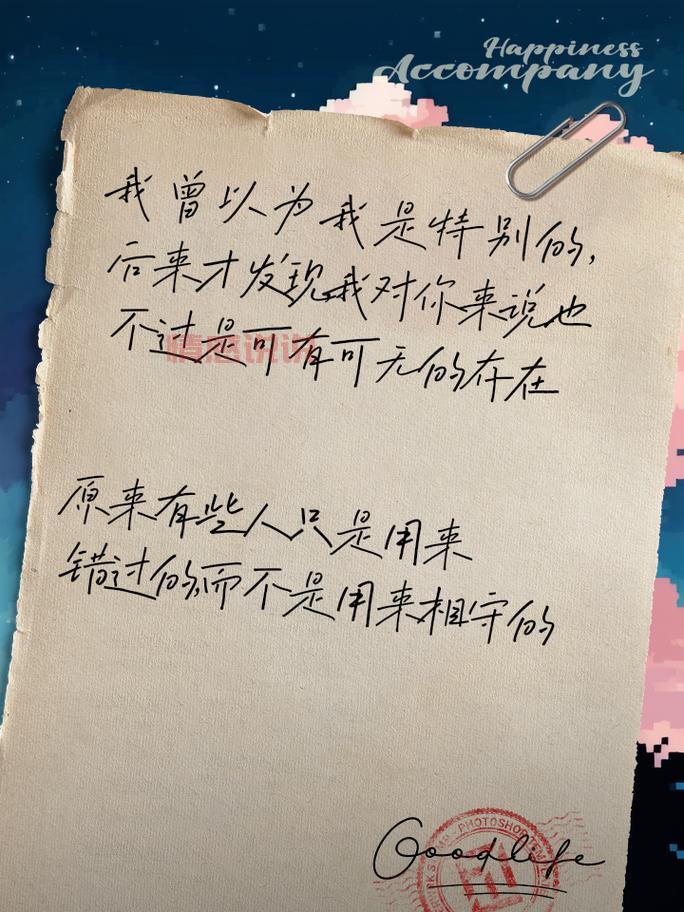 Happiness
Accompany
我曾以为我是特别的,
后来才发现,我对你来说也
不过是可有可无的存在
情感说说
原来有些人只是用来
错过的,而不是用来相守的
PHOTOSHOP
Goodlife